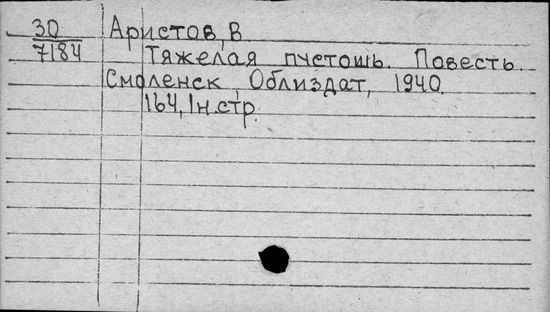 30 Аристов, В.
7184 Тяжелая пустошь. Повесть.
Смоленск, Облиздат, 1940.
164, 1 н. стр.